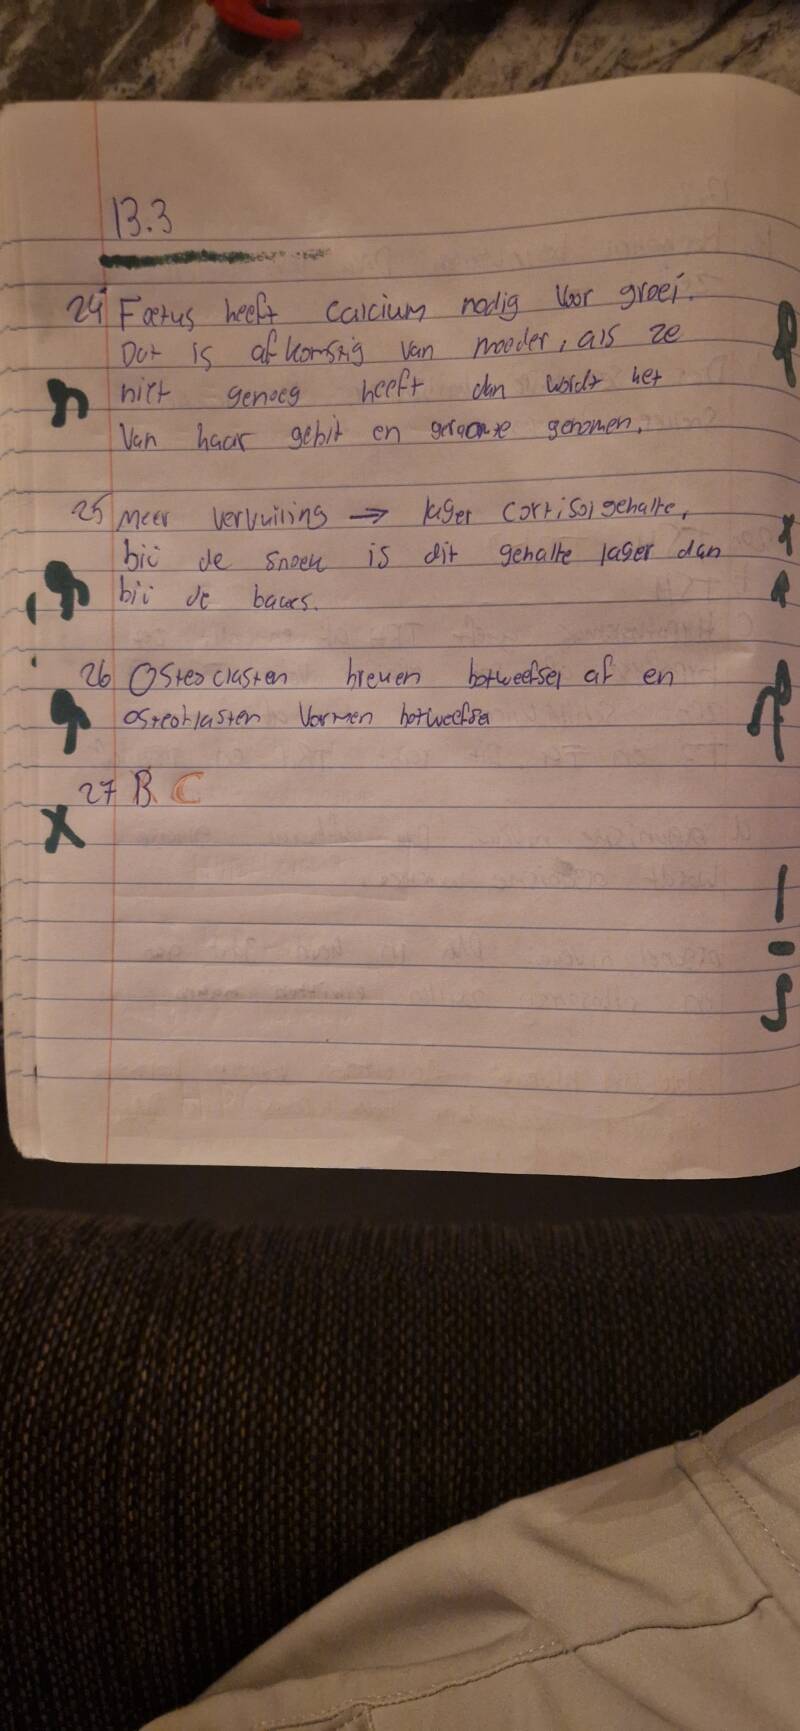 13.3
24 Foetus heeft calcium nodig voor groei.
Dat is afkomstig van moeder, als ze
niet genoeg heeft dan wordt het
van haar gebit en genomen.
25 Meer vervuiling → lager cortisolgehalte,
bij de snoek is dit gehalte lager dan
bij de baars.
26 Osteoclasten breken botweefsel af en
osteoblasten vormen botweefsel
27 B. C